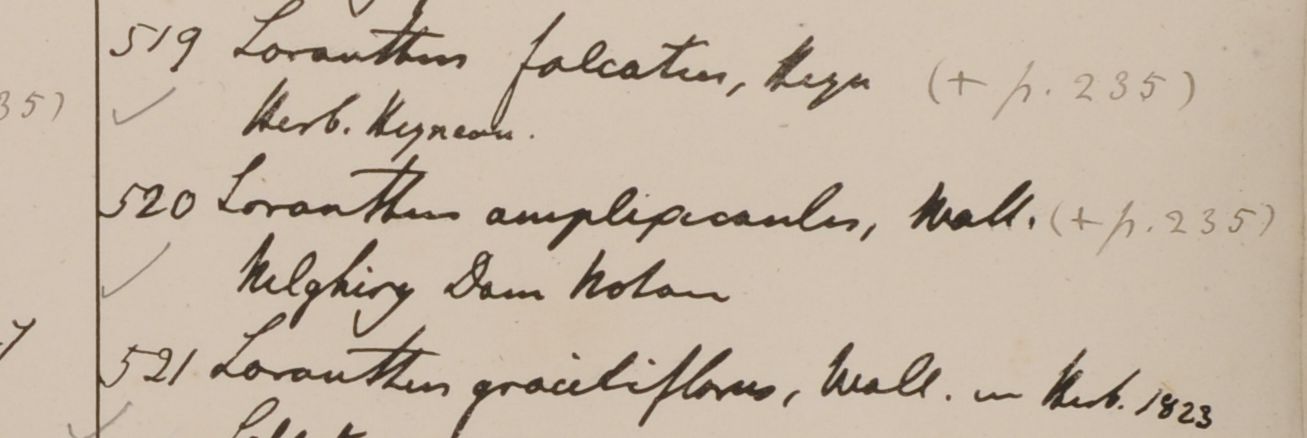 35)
519 Loranthus falcatus, Heyn (+ p. 235)
Herb. Heynean.
520 Loranthus amplexicaulis, Wall. (+ p. 235)
Nelghiry Dom Noton
521 Loranthus graciliflorus, Wall. in Herb. 1823